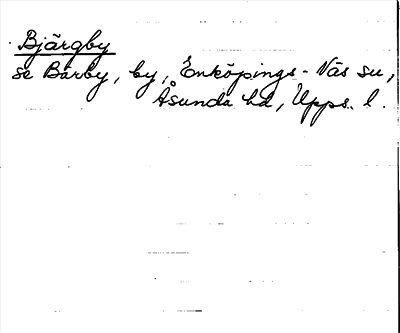 Bjärgby
se Bärby, by, Enköpings-Näs su,
Åsunda hd, Upps. l.